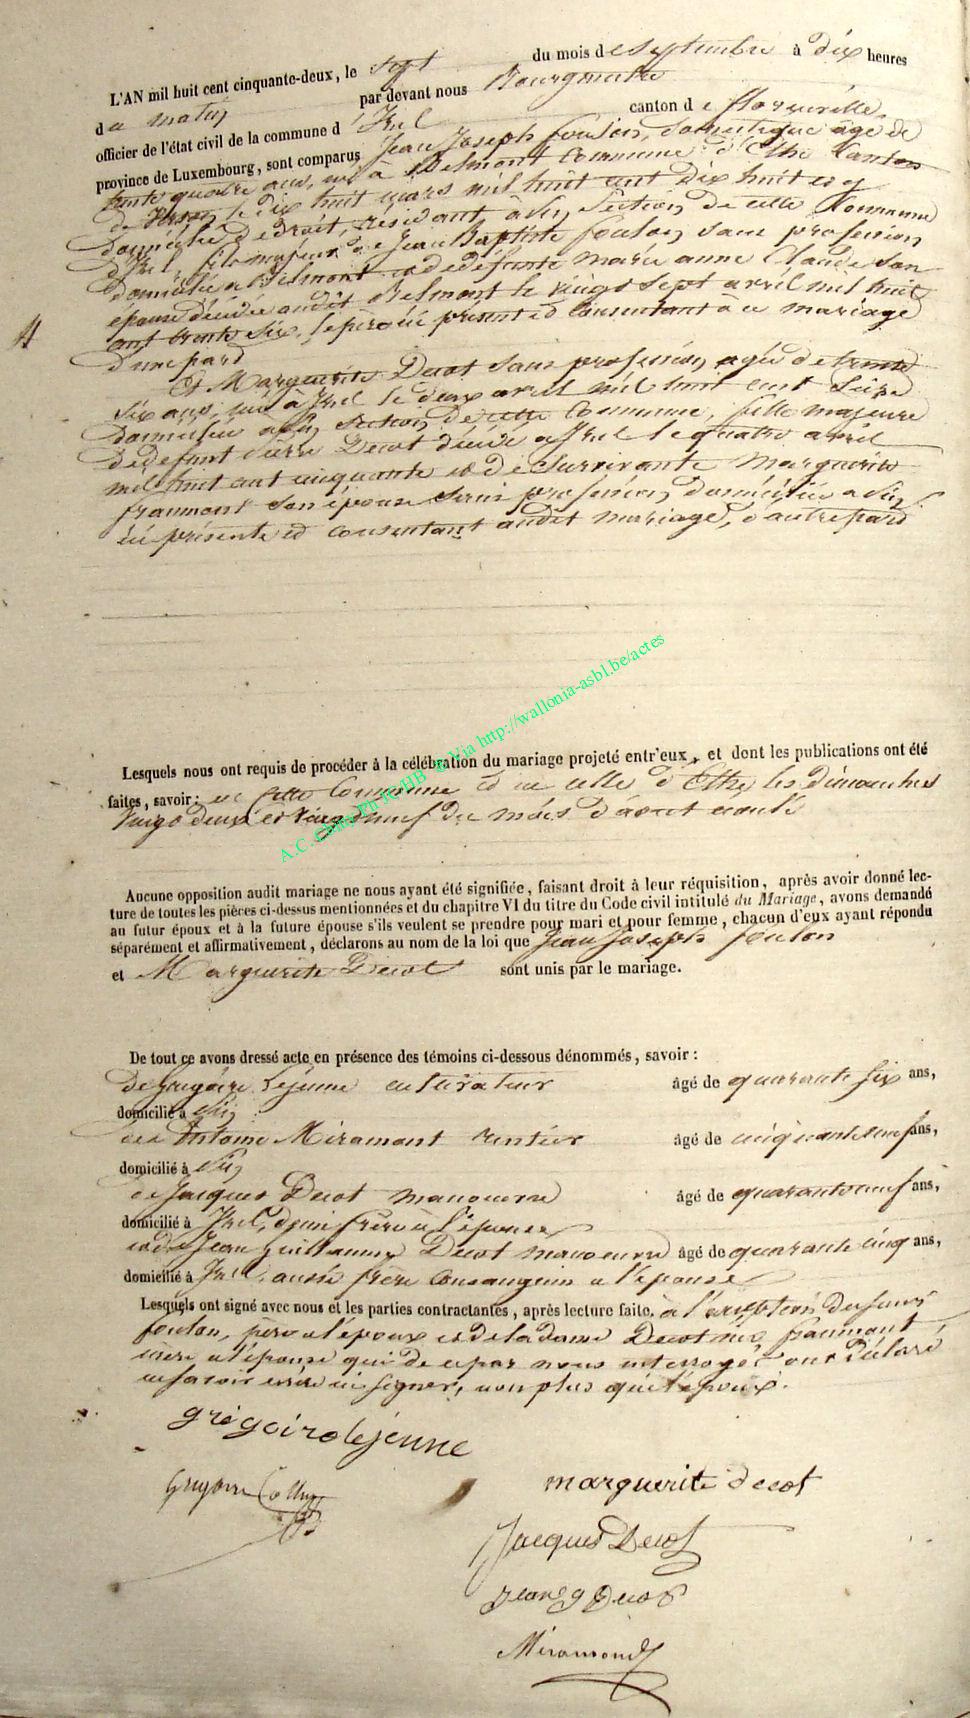 L'AN mil huit cent cinquante-deux, le sept du mois de Septembre à dix heures
du matin par devant nous Bourgmestre
officier de l'état civil de la commune d'Izel canton de florenville
province de Luxembourg, sont comparus Jean Joseph foulon, domestique âgé de
trente quatre ans, né à Belmont Commune d'Ethe Canton
de le dix huit mars mil huit cent dix huit et
domicilié de droit, résidant à section de cette Commune
d'Izel, fils majeur de Jean Baptiste foulon, sans profession
domicilié à Belmont et de défunte marie anne Claude son
épouse décédée audit Belmont le vingt sept avril mil huit
cent trente six, le père ici présent et Consentant à ce mariage
d'une part
Et Marguerite Decot sans profession, agée de trente
six ans, née à Izel le deux avril mil huit cent seize
domiciliée section de cette Commune, fille majeure
de defunt Decot décédé a Izel le quatre avril
mil huit cent cinquante et de survivante Marguerite
fraumont son épouse sans profession, domiciliée a
ici présente et consentant audit mariage, d'autre part
Lesquels nous ont requis de procéder à la célébration du mariage projeté entr'eux, et dont les publications ont été
faites, savoir: en cette Commune et en celle d'Ethe les dimanches
vingt deux et vingt neuf du mois d'aout
Aucune opposition audit mariage ne nous ayant été signifiée, faisant droit à leur réquisition, après avoir donné lec-
ture de toutes les pièces ci-dessus mentionnées et du chapitre VI du titre du Code civil intitulé du Mariage, avons demandé
au futur époux et à la future épouse s'ils veulent se prendre pour mari et pour femme, chacun d'eux ayant répondu
séparément et affirmativement, déclarons au nom de la loi que Jean Joseph foulon
et Marguerite Decot sont unis par le mariage.
De tout ce avons dressé acte en présence des témoins ci-dessous dénommés, savoir:
de Grégoire Lejeune cultivateur âgé de quarante six ans,
domicilié à
Antoine Miramont rentier âgé de ans,
domicilié à
de Jacques Decot manoeuvre âgé de quarante neuf ans,
domicilié à Izel, demi frère à l'épouse
et de Jean Guillaume Decot manoeuvre âgé de quarante cinq ans,
domicilié à Izel, aussi frère consanguin a l'épouse
Lesquels ont signé avec nous et les parties contractantes, après lecture faite, à l'exception du sieur
foulon, père a l'époux et de la dame Decot née fraumont
mère a l'épouse qui de ce par nous interrogés ont déclaré
ne savoir écrire ni signer, non plus que l'époux.
grégoire lejeune
marguerite decot
Jacques Decot
jean g Decot
Miramont
A.C. Ch Ph JC HB © Via http://wallonia-asbl.be/actes